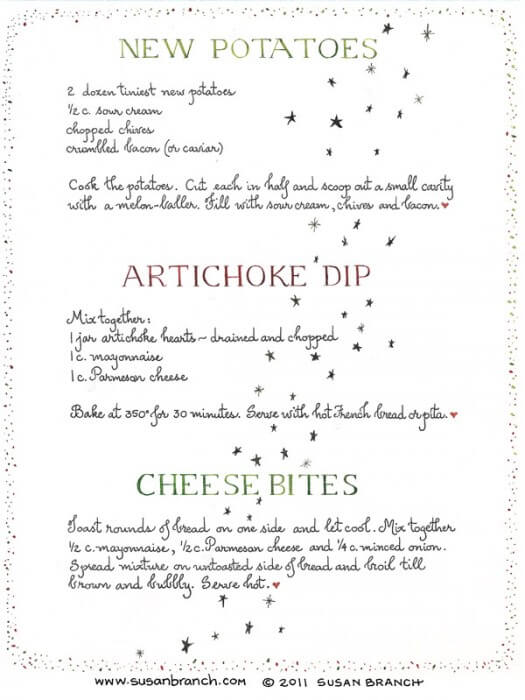 NEW POTATOES
2 dozen tiniest new potatoes
½ c. sour cream
chopped chives
crumbled bacon (or caviar)
Cook the potatoes. Cut each in half and scoop out a small cavity
with a melon-baller. Fill with sour cream, chives and bacon. ♥
ARTICHOKE DIP
Mix together:
1 jar artichoke hearts ~ drained and chopped
1 c. mayonnaise
1 c. Parmesan cheese
Bake at 350° for 30 minutes. Serve with hot French bread or pita. ♥
CHEESE BITES
Toast rounds of bread on one side and let cool. Mix together
½ c. mayonnaise, ½ c. Parmesan cheese and ¼ c. minced onion.
Spread mixture on untoasted side of bread and broil till
brown and bubbly. Serve hot. ♥
www.susanbranch.com © 2011 SUSAN BRANCH